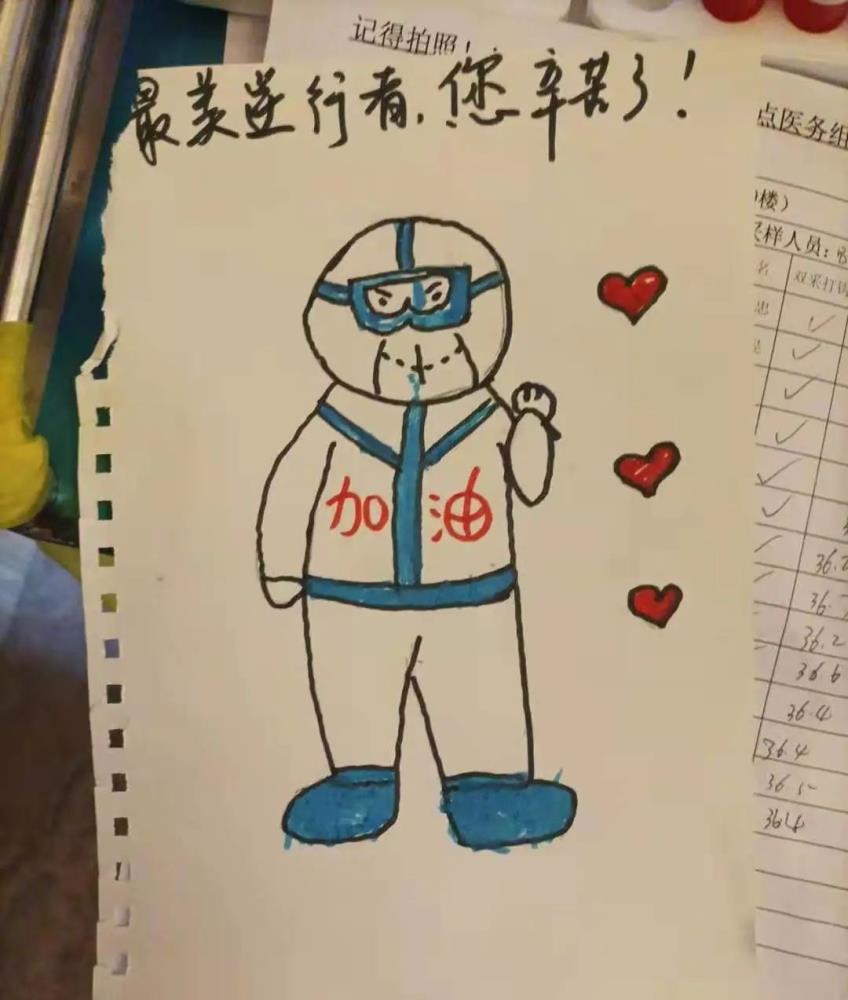 记得拍照！
最美逆行者，您辛苦了！
加油
点医务组
楼）
采样人员：
名 双采打钩
36.2
36.6
36.4
36.4
36.5
36.8